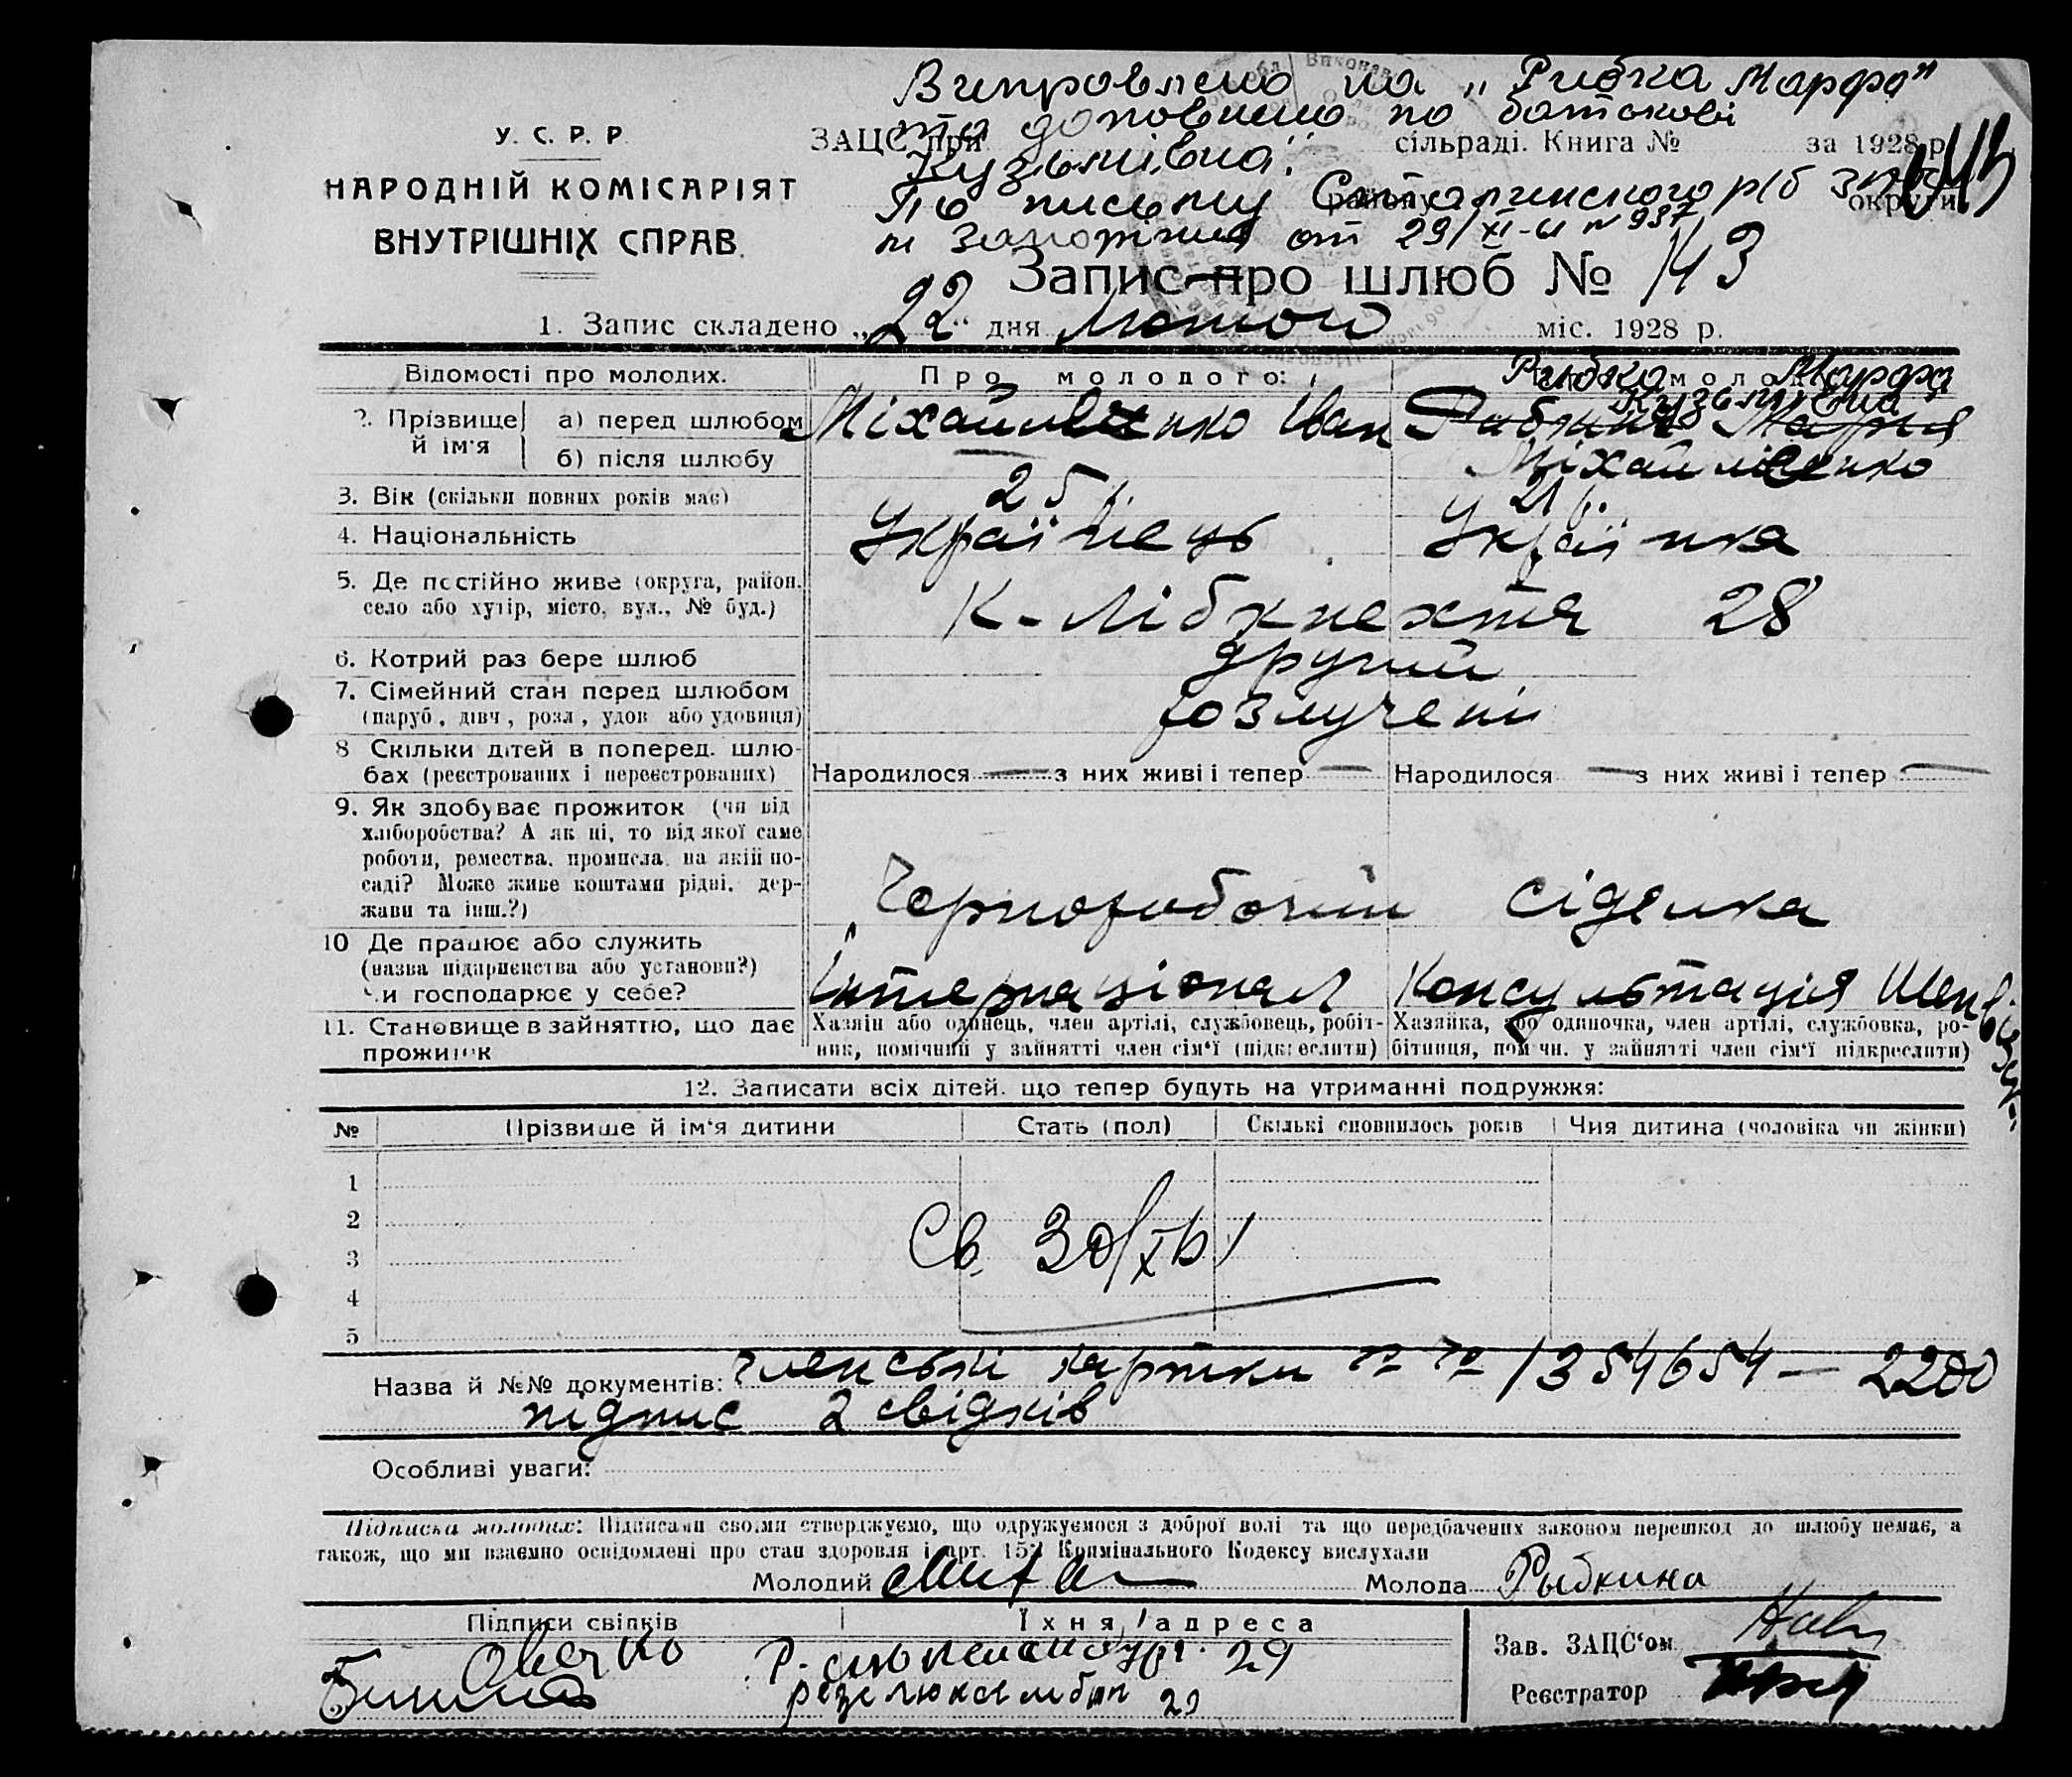 Виправлено на „Рибка Марфа"
та доповнено по батькові
У. С. Р. Р.
ЗАЦС при сільраді. Книга № за 1928 р.
Кузьмівна.
НАРОДНІЙ КОМІСАРІЯТ
ВНУТРІШНІХ СПРАВ.
По письму Сталинского р/б ЗАГС
району округи
м Запоріжжя от 29/XI-61 № 937
Запис про шлюб № 143
1. Запис складено „22" дня Лютого міс. 1928 р.
Відомості про молодих.
Про молодого:
Рибка Марфа
Кузьмівна
2. Прізвище й ім'я
а) перед шлюбом Міхайличенко Іван Рибкина Марфа
б) після шлюбу — Міхайличенко
3. Вік (скільки повних років має) 25 р. 21 р.
4. Національність Українець Українка
5. Де постійно живе (округа, район,
село або хутір, місто, вул., № буд.) К-Лібкнехта 28
6. Котрий раз бере шлюб другий
7. Сімейний стан перед шлюбом
(паруб., дівч., розл., удов. або удовиця) розлучені
8 Скільки дітей в поперед. шлю-
бах (реєстрованих і нереєстрованих) Народилося — з них живі і тепер — Народилося — з них живі і тепер —
9. Як здобуває прожиток (чи від
хліборобства? А як ні, то від якої саме
роботи, ремества, промисла, на якій по-
саді? Може живе коштами рідні, дер-
жави та інш.?) Чорноробочий сіделка
10 Де працює або служить
(назва підприємства або установи?)
Чи господарює у себе? Інтернаціонал Консультація
11. Становище в зайняттю, що дає
прожиток
Хазяін або одинець, член артілі, службовець, робіт-
ник, помічний у зайнятті член сім'ї (підкреслити)
Хазяйка, або одиночка, член артілі, службовка, ро-
бітниця, помічн. у зайнятті член сім'ї підкреслити)
12. Записати всіх дітей, що тепер будуть на утриманні подружжя:
№ Прізвище й ім'я дитини Стать (пол) Скількі сповнилось років Чия дитина (чоловіка чи жінки)
1
2
Св. 30/XI 61
3
4
5
Назва й №№ документів: членські картки №№ 1354654 — 2200
підпис 2 свідків
Особливі уваги:
Підписка молодих: Підписами своїми стверджуємо, що одружуємося з доброї волі та що передбачених законом перешкод до шлюбу немає, а
також, що ми взаємно освідомлені про стан здоровля і арт. 152 Кримінального Кодексу вислухали
Молодий Молода Рыбкина
Підписи свідків Їхня адреса
Овечко 29
Зав. ЗАЦС'ом
Реєстратор